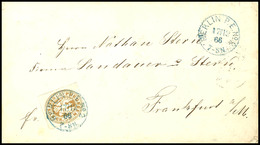 BERLIN P.E. No 3.
17 12
66
7-8 N.
Herrn Nathan Stern
Firma Sandauer & Stern
Frankfurt a/M.
fr.
66
7-8 N.